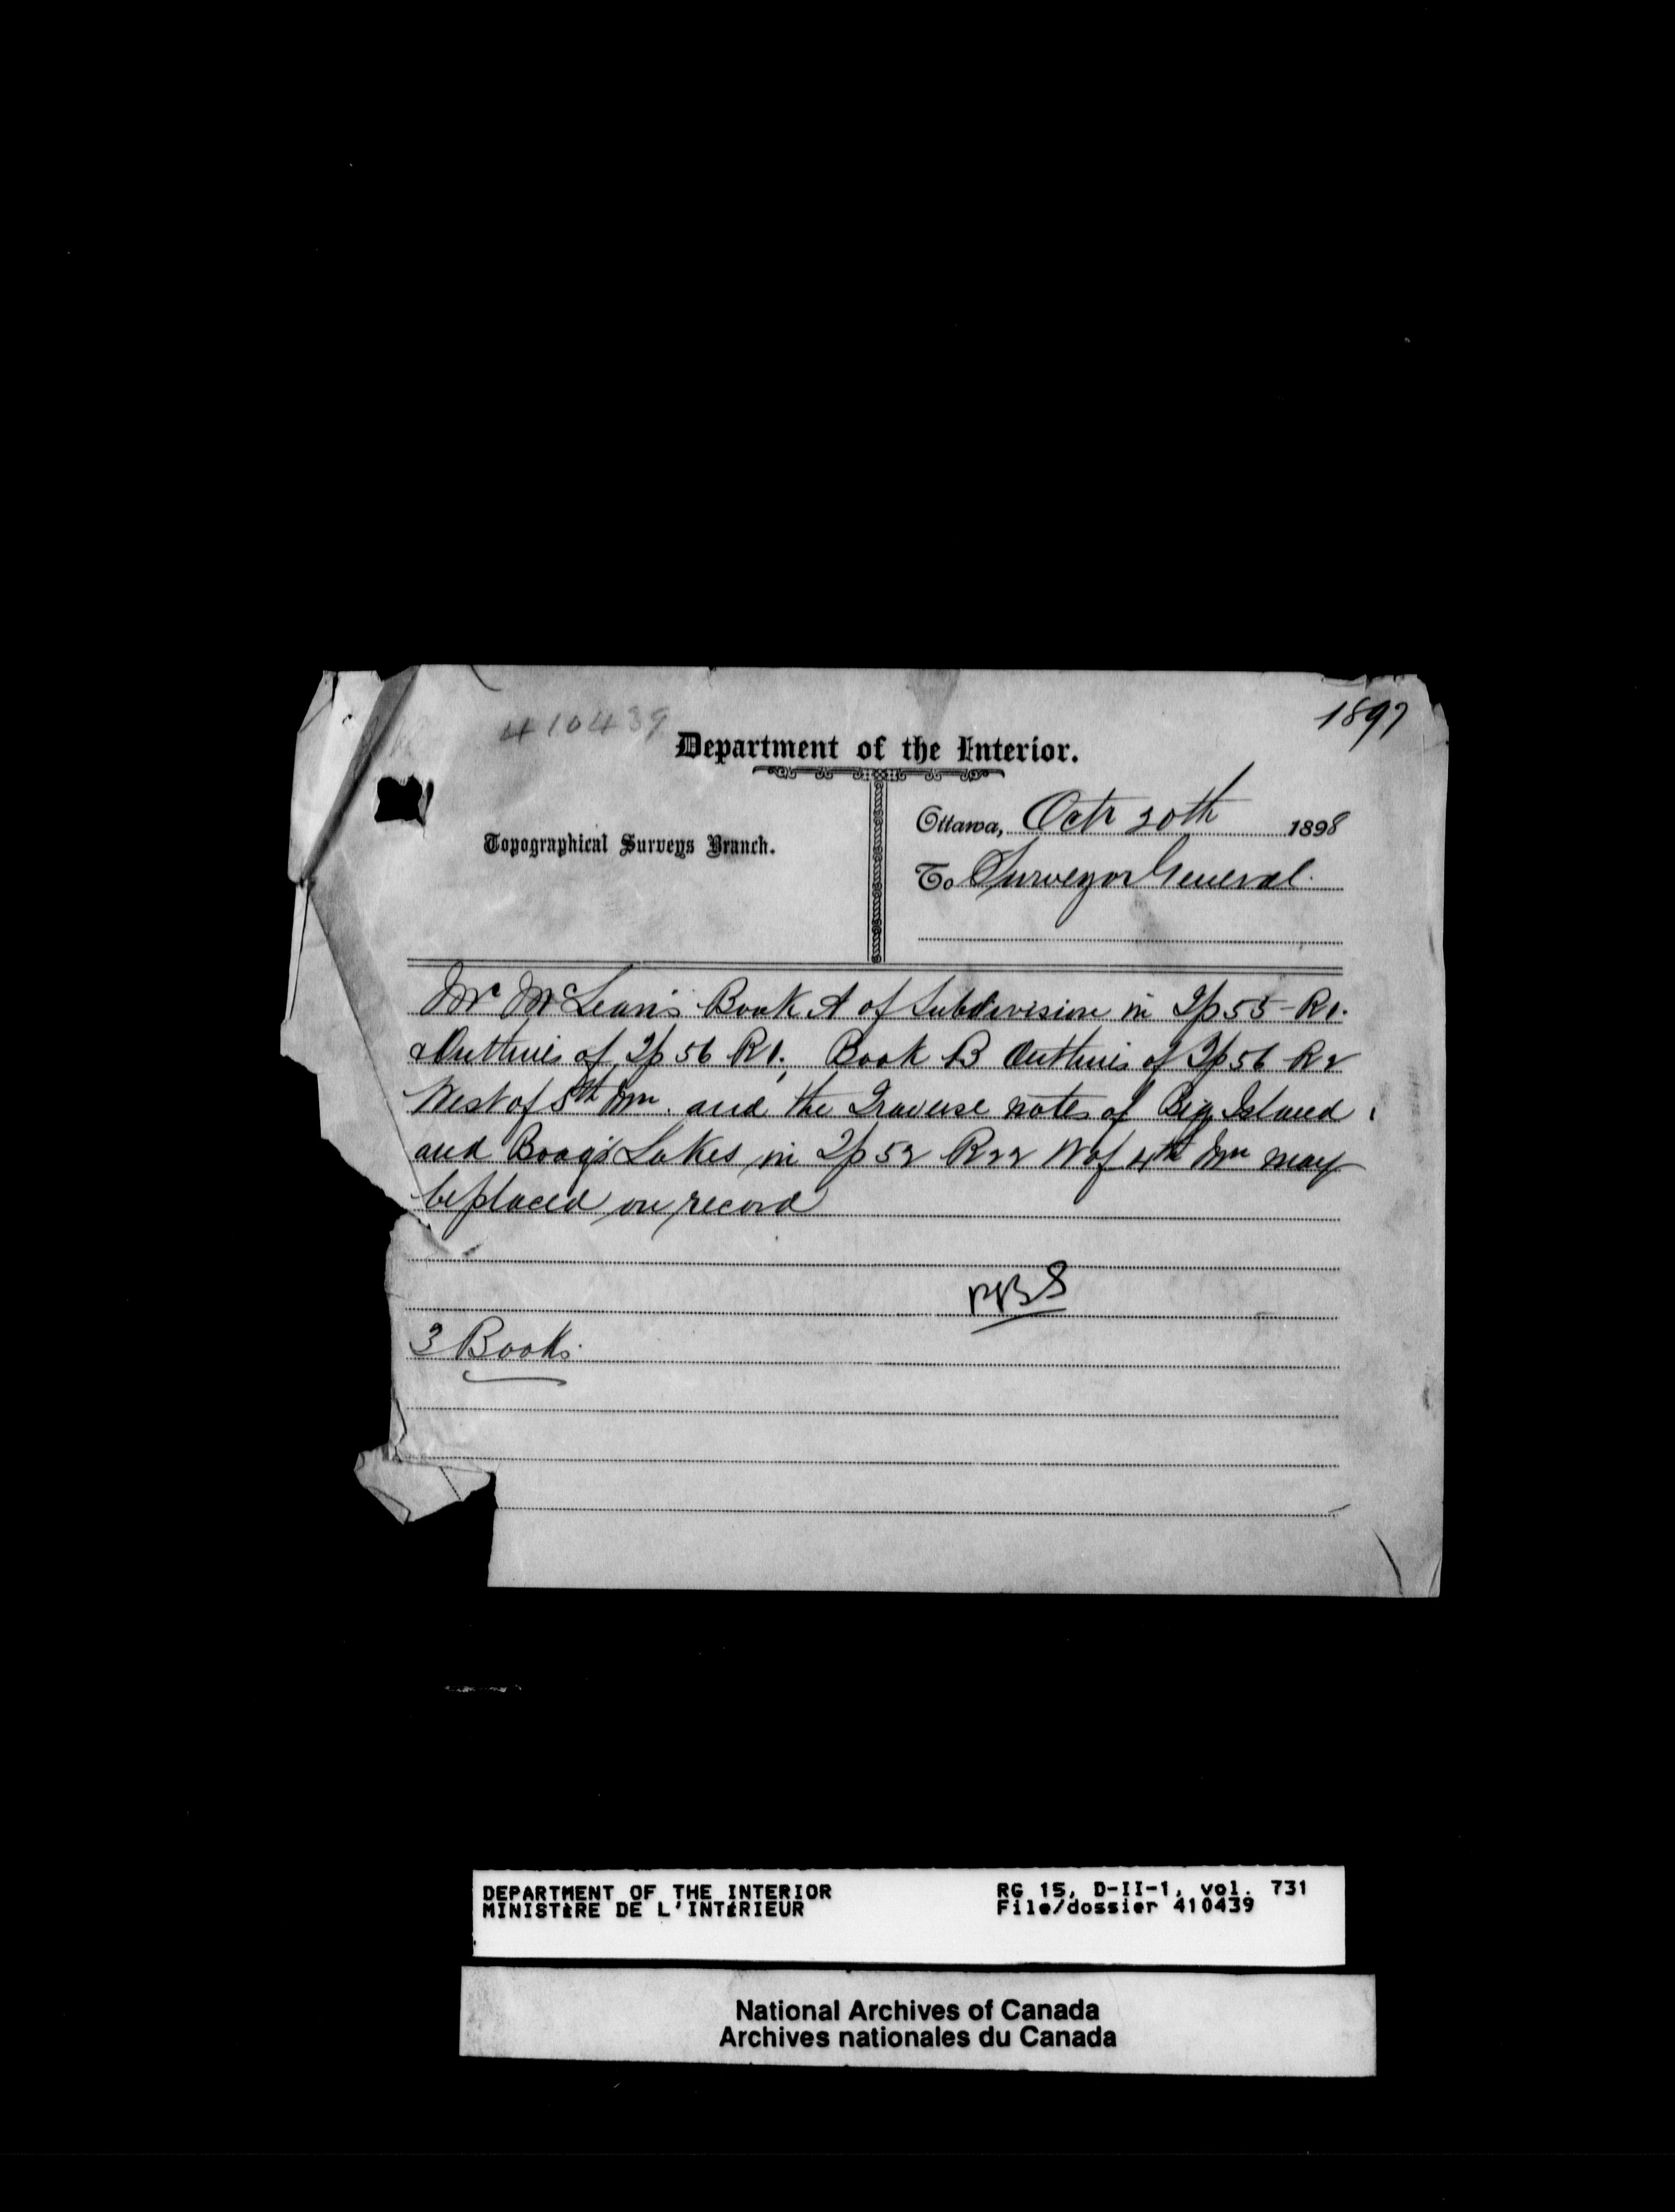 410439
1897
Department of the Interior.
Topographical Surveys Branch.
Ottawa, Octr 20th 1898
To Surveyor General.
Mr McLean's Book A of Subdivision in Tp 55 - R1.
& Outlines of Tp 56 R1. Book B Outlines of Tp 56 R2
West of 5th Mn. and the Traverse notes of Big Island
and Boag's Lakes in Tp 52 R22 W of 4th Mn may
be placed on record
3 Books.
DEPARTMENT OF THE INTERIOR
MINISTÈRE DE L'INTÉRIEUR
RG 15, D-II-1, vol. 731
File/dossier 410439
National Archives of Canada
Archives nationales du Canada